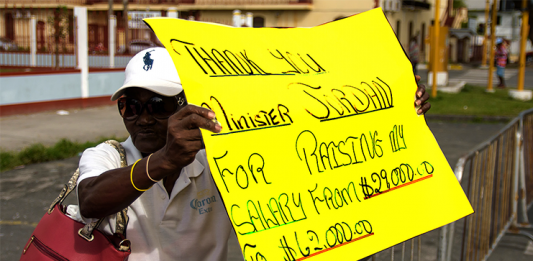 THANK YOU
MINISTER JORDAN
FOR RAISING MY
SALARY FROM $29,000.00
TO $62,000.00
Corona
Extra